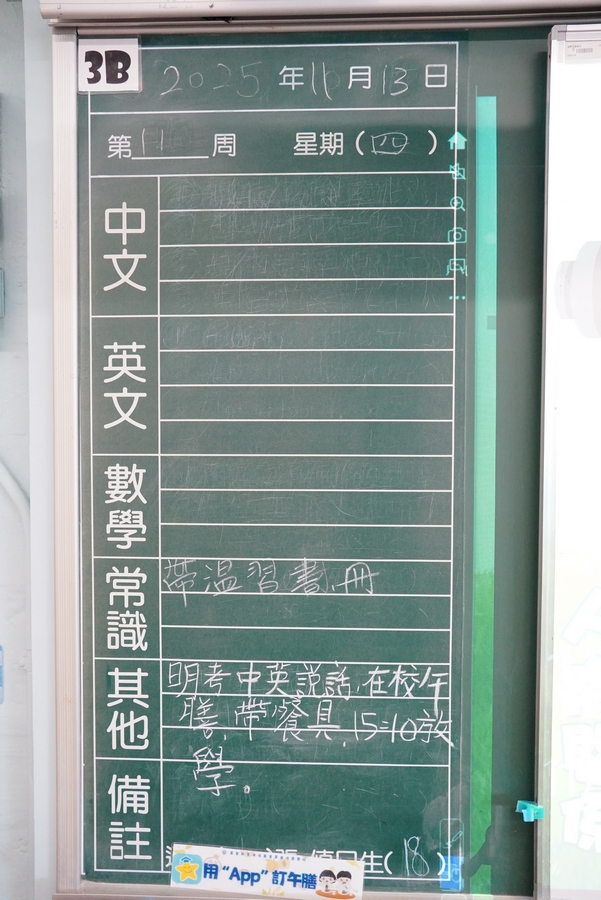 3B
2025年11月13日
第11周 星期(四)
中文
英文
數學
常識
帶温習畫冊
其他
明考中英説話,在校午
膳,帶餐具,15:10放
學。
備註
值日生(18)
用“App”訂午膳